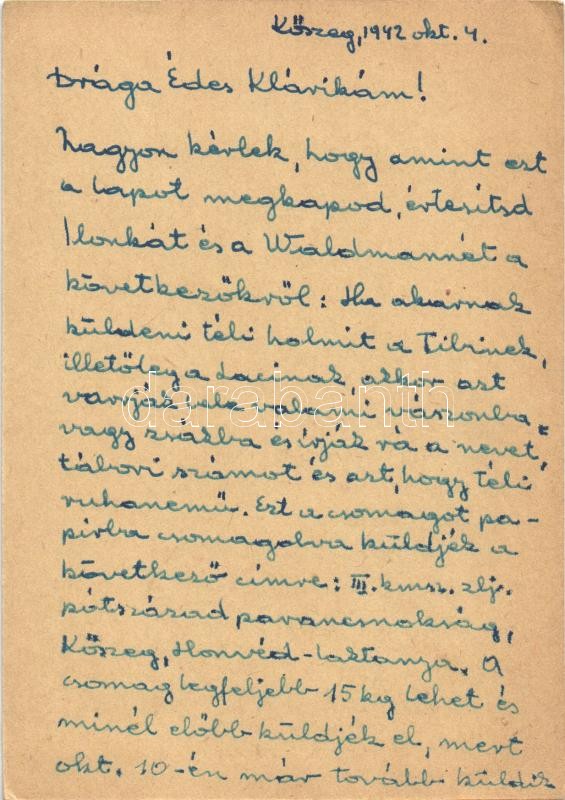 Kőszeg, 1942 okt. 4.
Drága Édes Klárikám!
Nagyon kérlek, hogy amint ezt
a lapot megkapod, értesítsd
Ilonkát és a Waldmannét a
következőkről: Ha akarnak
küldeni téli holmit a Tibinek,
illetőleg a Lacinak, akkor azt
varrják bele valami vászonba
vagy zsákba és írják rá a nevet,
tábori számot és azt, hogy téli
ruhanemű. Ezt a csomagot pa-
pírba csomagolva küldjék a
következő címre: III. kmsz. zlj.
pótszázad parancsnokság,
Kőszeg, Honvéd-laktanya. A
csomag legfeljebb 15 kg lehet és
minél előbb küldjék el, mert
okt. 10-én már tovább küldik
darabanth